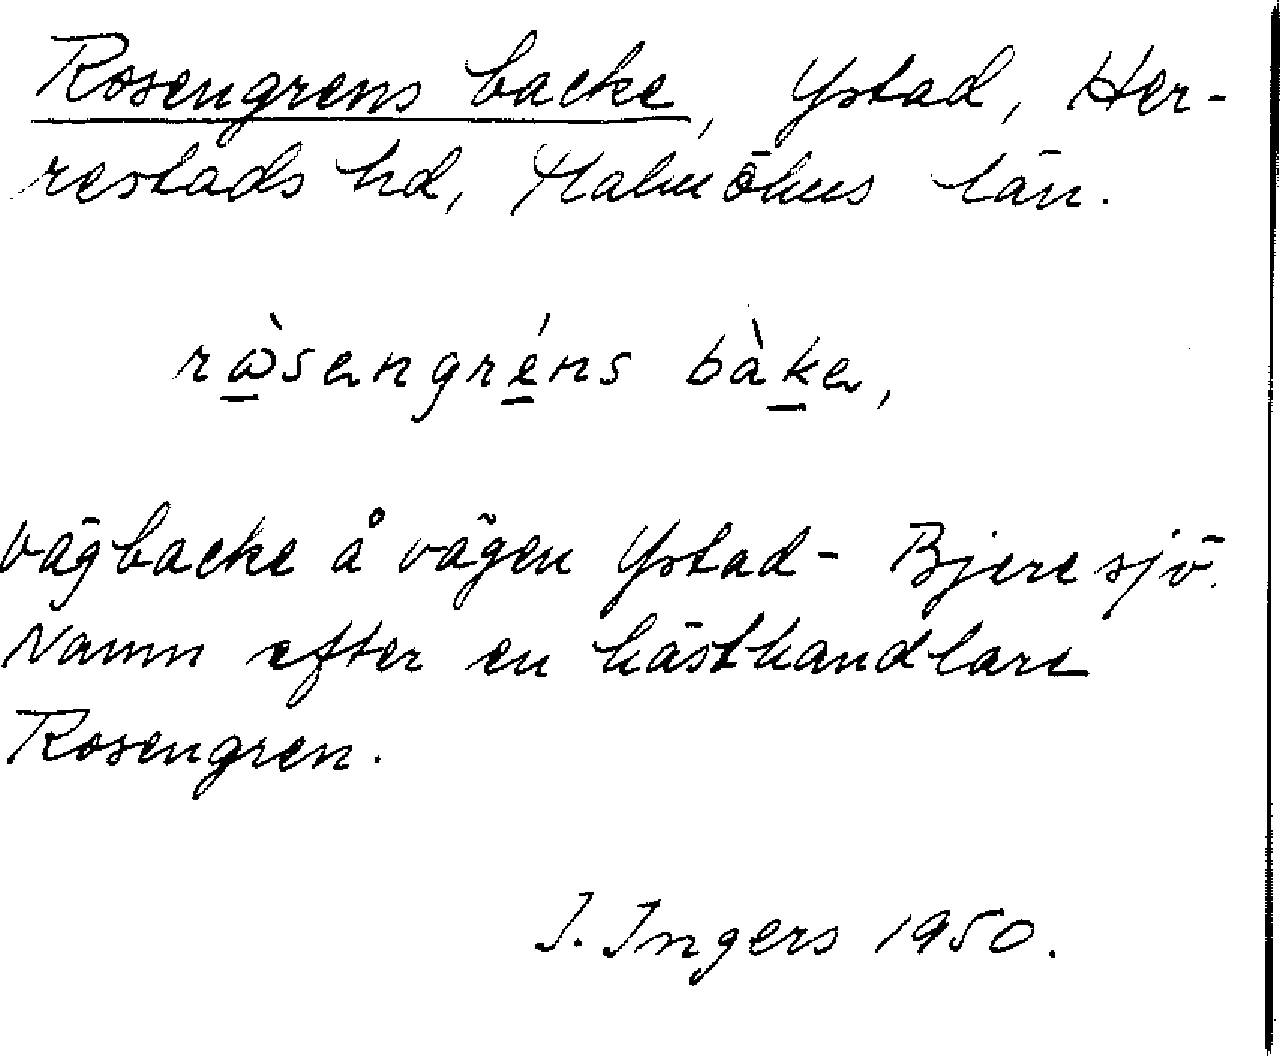 Rosengrens backe, Ystad, Her-
restads hd, Malmöhus län.
rɷ̀sengréns bàker,
vägbacke å vägen Ystad - Bjeresjö.
Namn efter en hästhandlare
Rosengren.
I. Ingers 1950.